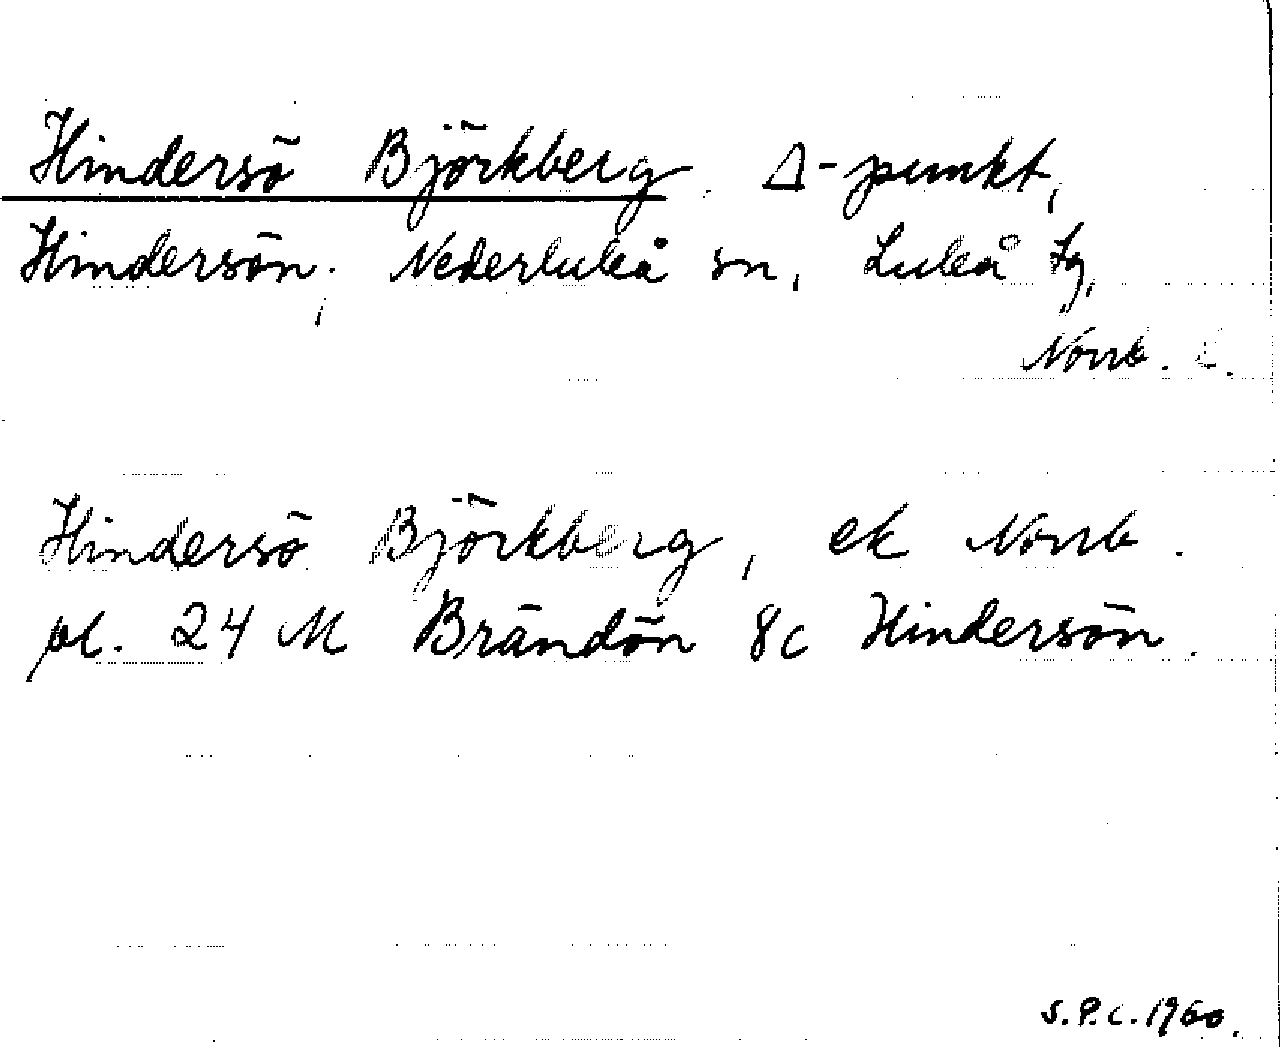 Hindersö Björkberg. Δ-punkt,
Hindersön, Nederluleå sn, Luleå tg,
Norrb. l.
Hindersö Björkberg, ek Norrb.
pl. 24 M Brändön 8c Hindersön.
S.P.C. 1960.